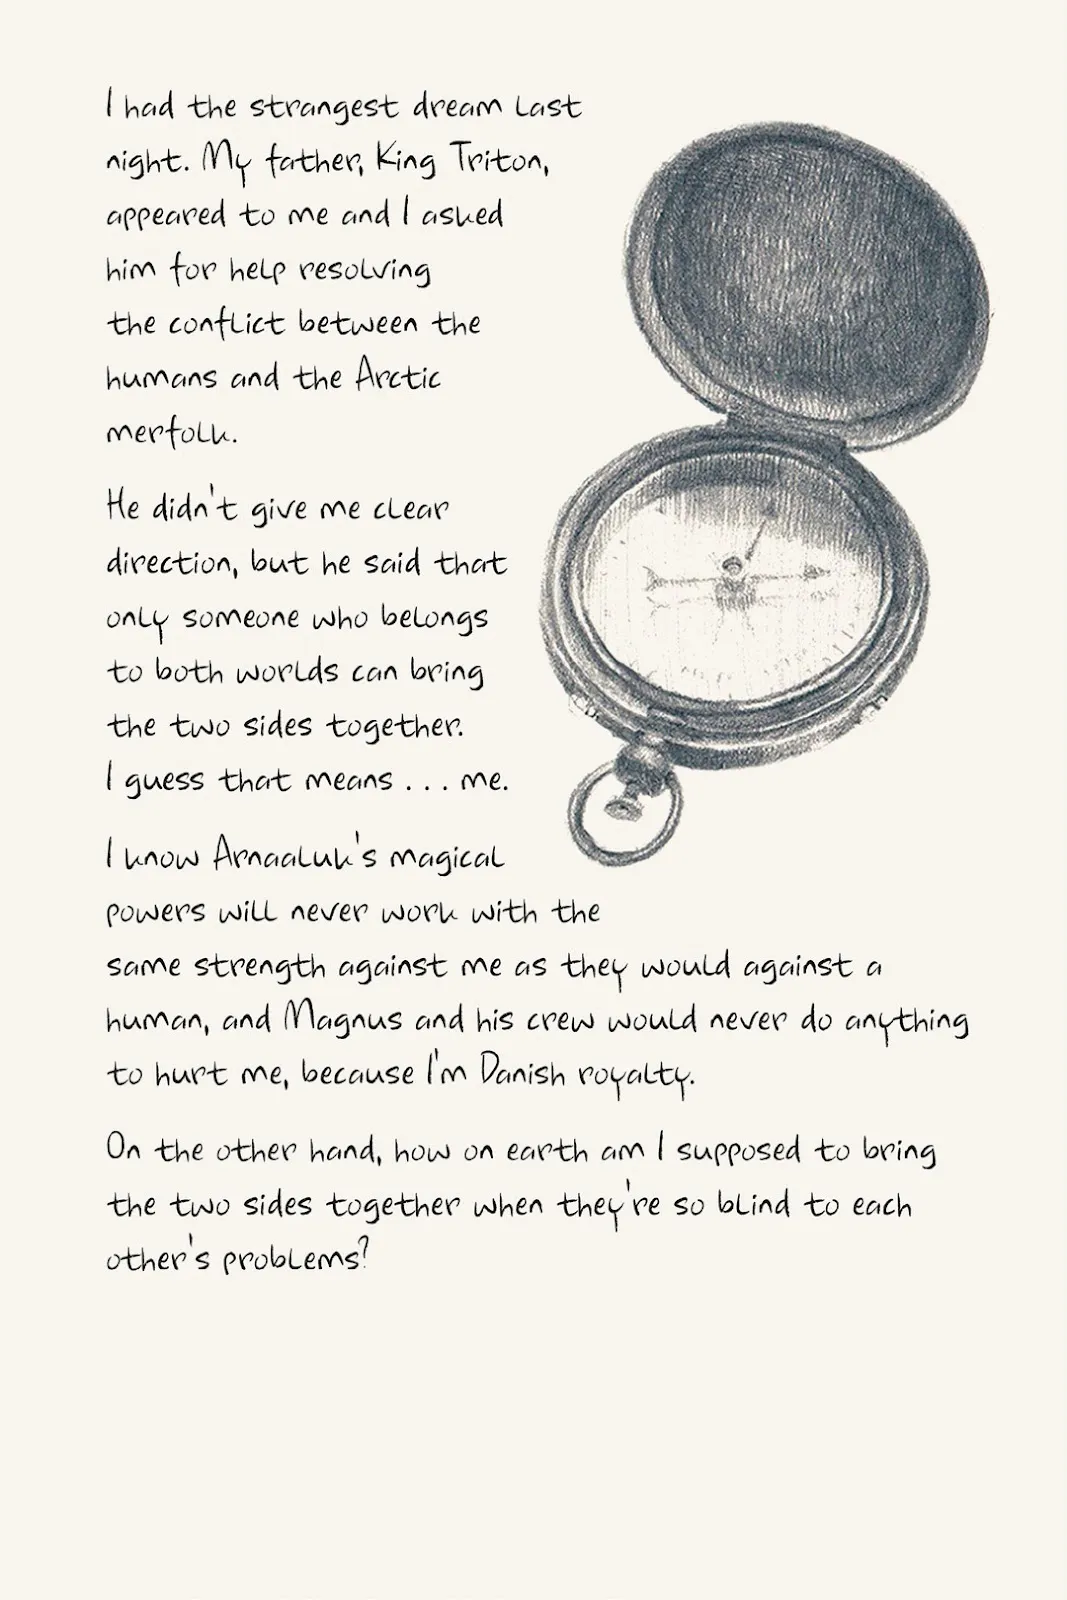 I had the strangest dream last
night. My father, King Triton,
appeared to me and I asked
him for help resolving
the conflict between the
humans and the Arctic
merfolk.
He didn't give me clear
direction, but he said that
only someone who belongs
to both worlds can bring
the two sides together.
I guess that means . . . me.
I know Arnaaluk's magical
powers will never work with the
same strength against me as they would against a
human, and Magnus and his crew would never do anything
to hurt me, because I'm Danish royalty.
On the other hand, how on earth am I supposed to bring
the two sides together when they're so blind to each
other's problems?